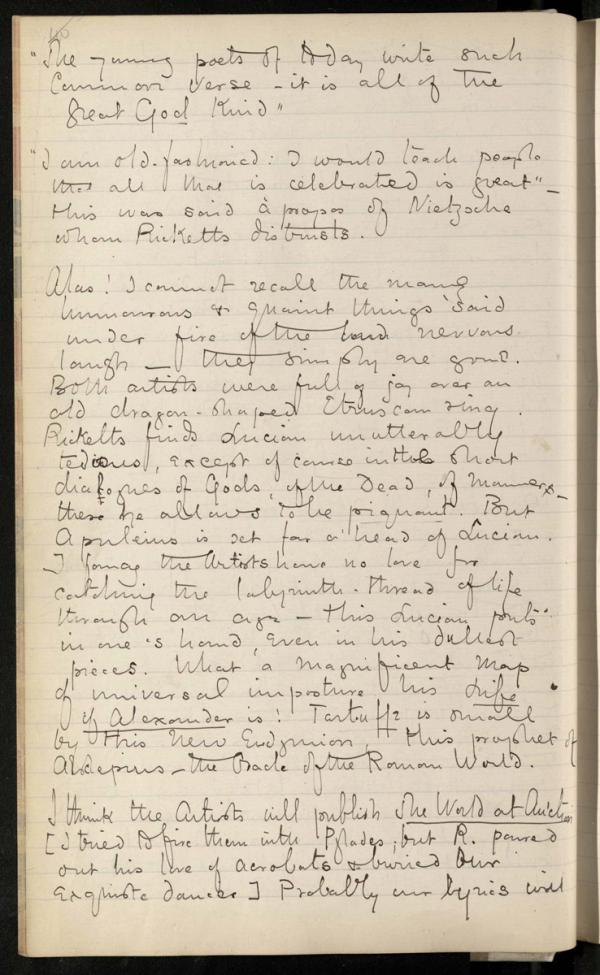 "The young poets of today write such
Common verse – it is all of the
Great God Kind"
"I am old-fashioned: I would teach people
that all that is celebrated is great" –
this was said à propos of Nietzsche
whom Ricketts distrusts.
Alas! I cannot recall the many
humourous & quaint things said
under fire of the loud nervous
laugh – they simply are gone.
Both artists were full of joy over an
old dragon-shaped Etruscan ring.
Ricketts finds Lucian unutterably
tedious, except of course in the short
dialogues of Gods, of the Dead, of Manners –
these he allows to be piquant. But
Apuleius is set far a'head of Lucian.
I fancy the Artists have no love for
catching the labyrinth-thread of life
through an age – this Lucian puts
in one's hand, even in his dullest
pieces. What a magnificent map
of universal imposture his Life
of Alexander is! Tartuffe is small
by this new Endymion, this prophet of
– the Oracle of the Roman World.
I think the Artists will publish The World at Auction
[I tried to fire them with Pylades; but R. poured
out his love of acrobats & buried our
exquisite dancer] Probably our lyrics will